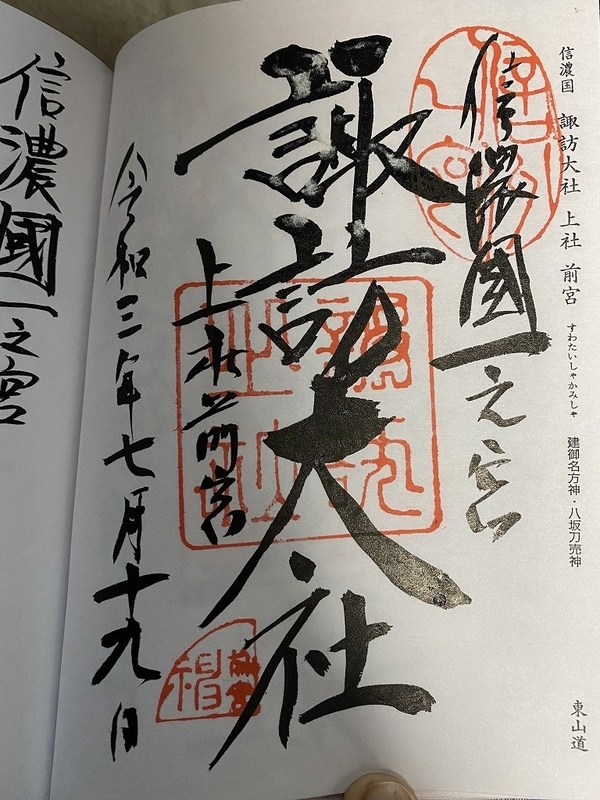 信濃国 諏訪大社 上社 前宮 すわたいしゃかみしゃ 建御名方神・八坂刀売神
東山道
信濃國一之宮
諏訪大社
上社前宮
令和三年七月十九日
信濃國一之宮